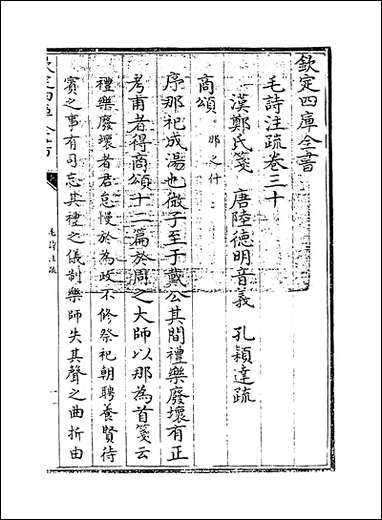 欽定四庫全書
毛詩注疏卷三十
漢鄭氏箋 唐陸德明音義 孔穎達疏
商頌 那之什
序那祀成湯也微子至于戴公其間禮樂廢壞有正
考甫者得商頌十二篇於周之大師以那為首箋云
禮樂廢壞者君怠慢於為政不修祭祀朝聘養賢待
賓之事有司忘其禮之儀制樂師失其聲之曲折由
欽定四庫全書
毛詩注疏